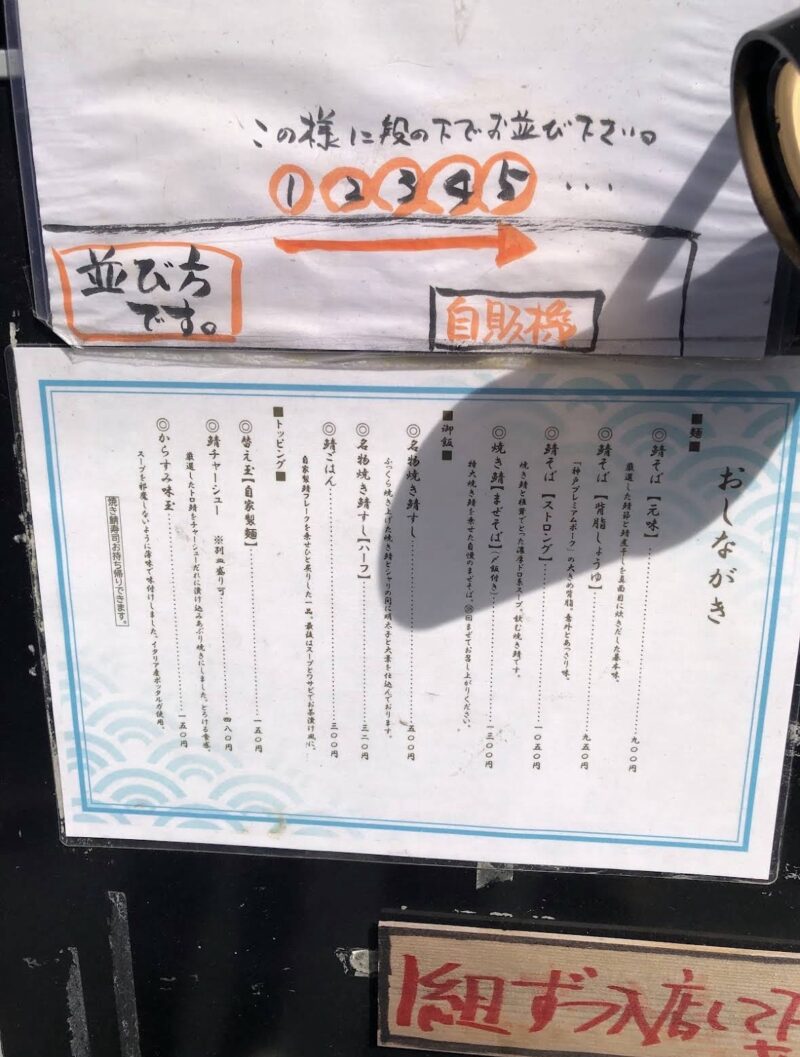 この様に段の下でお並び下さい。
1 2 3 4 5 ...
並び方
です。
自販機
おしながき
■麺■
◎鯖そば【元味】 九〇〇円
厳選した鯖節と鯖煮干しを真面目に炊きだした基本味。
◎鯖そば【背脂しょうゆ】 九五〇円
「神戸プレミアムポーク」の大きめ背脂。意外とあっさり味。
◎鯖そば【ストロング】 一〇五〇円
焼き鯖と根菜でとった濃厚ドロ系スープ。飲む焼き鯖です。
◎焼き鯖【まぜそば】(〆飯付き) 一三〇〇円
特大焼き鯖を乗せた自慢のまぜそば。回まぜてお召し上がりください。
■御飯■
◎名物焼き鯖すし 五〇〇円
ふっくら焼き上げた焼き鯖とシャリの間に明太子と大葉を仕込んでおります。
◎名物焼き鯖すし【ハーフ】 三二〇円
◎鯖ごはん 三〇〇円
自家製鯖フレークを乗せひと炙りした一品。最後はスープとワサビでお茶漬け風に。
■トッピング■
◎替え玉【自家製麺】 一五〇円
◎鯖チャーシュー ※別皿盛り可 四八〇円
厳選したトロ鯖をチャーシューだれに漬け込みあぶり焼きにしました。とろける食感。
◎からすみ味玉 一五〇円
スープを邪魔しないように薄味で味付けしました。イタリア産ボッタルガ使用。
焼き鯖寿司お持ち帰りできます。
1組ずつ入店して下